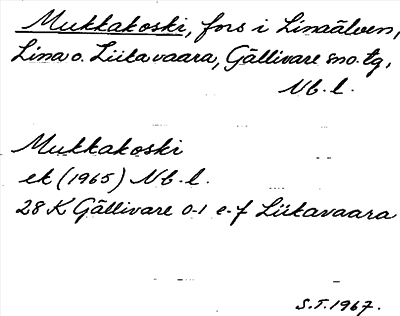 Mukkakoski, fors i Linaälven,
Lina o. Liikavaara, Gällivare sno. tg,
Nb. l.
Mukkakoski
ek (1965) Nb. l.
28 K Gällivare 0-1 e-f Liikavaara
S.T. 1967.